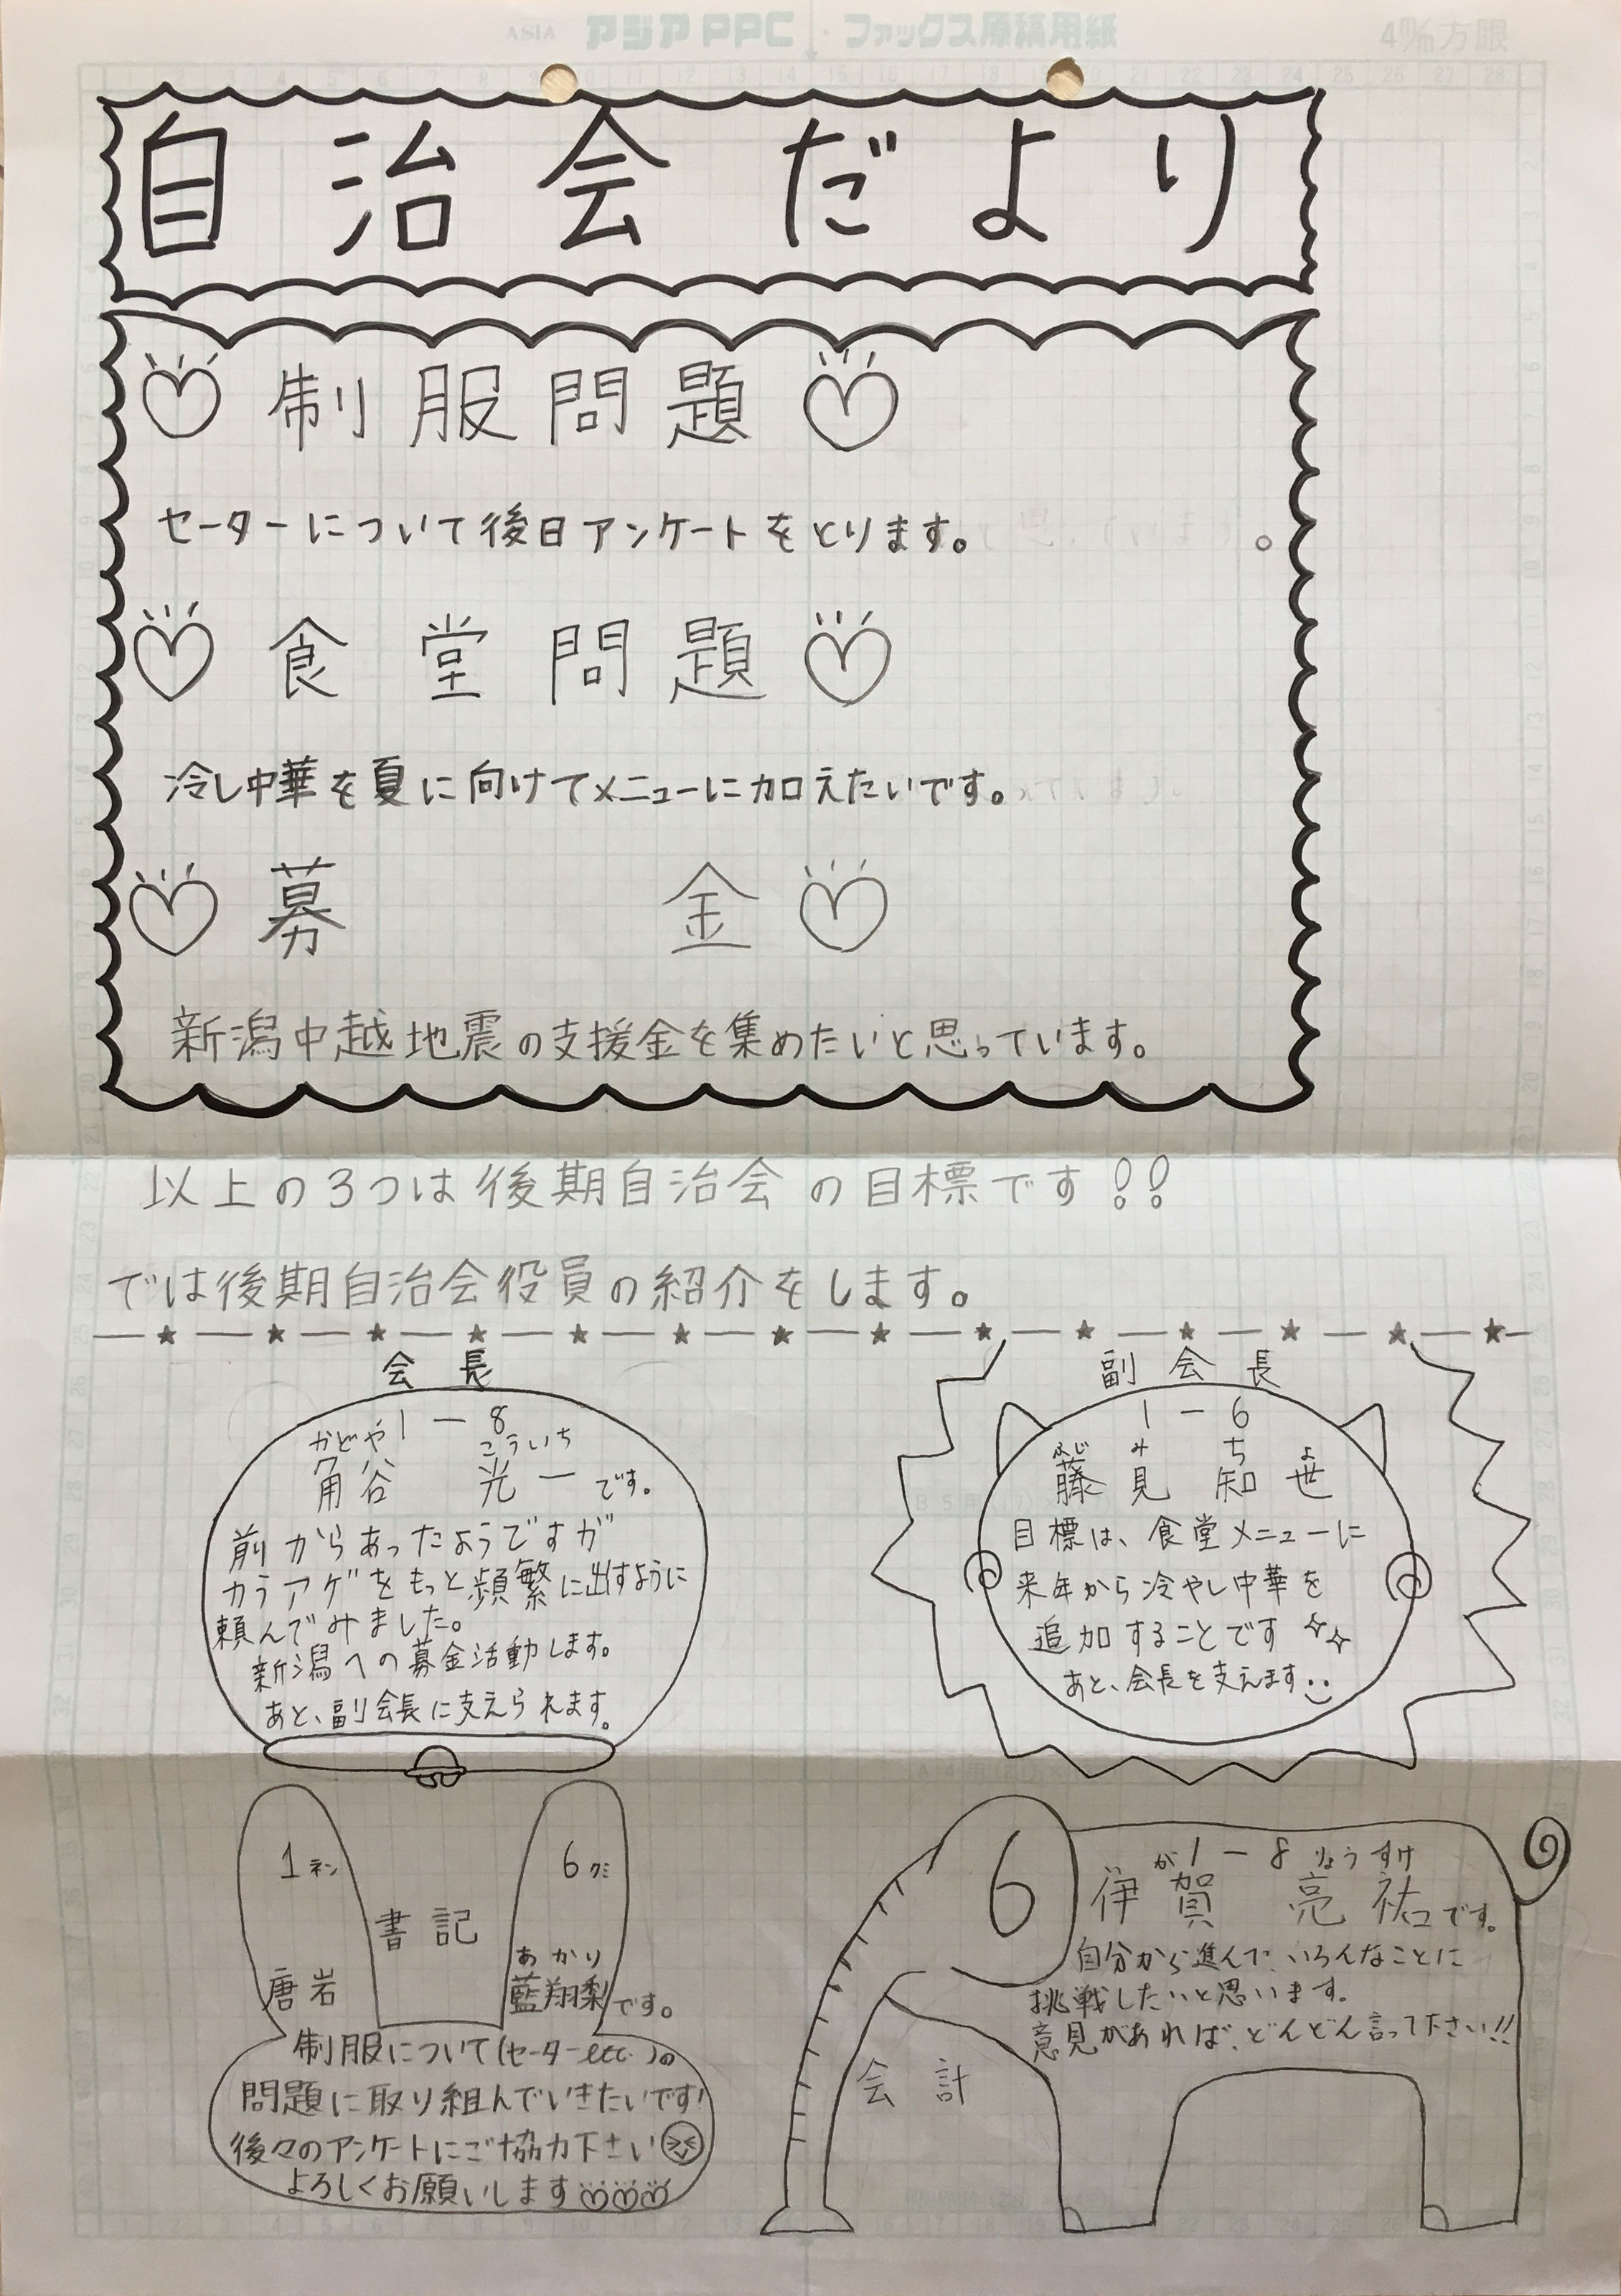 ASIA アジア PPC・ファックス原稿用紙 4㎜方眼
自治会だより
制服問題
セーターについて後日アンケートをとります。
食堂問題
冷し中華を夏に向けてメニューに加えたいです。
募金
新潟中越地震の支援金を集めたいと思っています。
以上の3つは後期自治会の目標です!!
では後期自治会役員の紹介をします。
会長
1-8
かどや こういち
角谷 光一です。
前からあったようですが
カラアゲをもっと頻繁に出すように
頼んでみました。
新潟への募金活動します。
あと、副会長に支えられます。
副会長
1-6
ふじ み ち よ
藤見 知世
目標は、食堂メニューに
来年から冷やし中華を
追加することです
あと、会長を支えます
1ネン 6クミ
書記
あかり
唐岩 藍翔梨です。
制服について(セーターetc.)の
問題に取り組んでいきたいです!
後々のアンケートにご協力下さい
よろしくお願いします
6
1-8
が りょうすけ
伊賀 亮祐です。
自分から進んで、いろんなことに
挑戦したいと思います。
意見があれば、どんどん言って下さい!!
会計